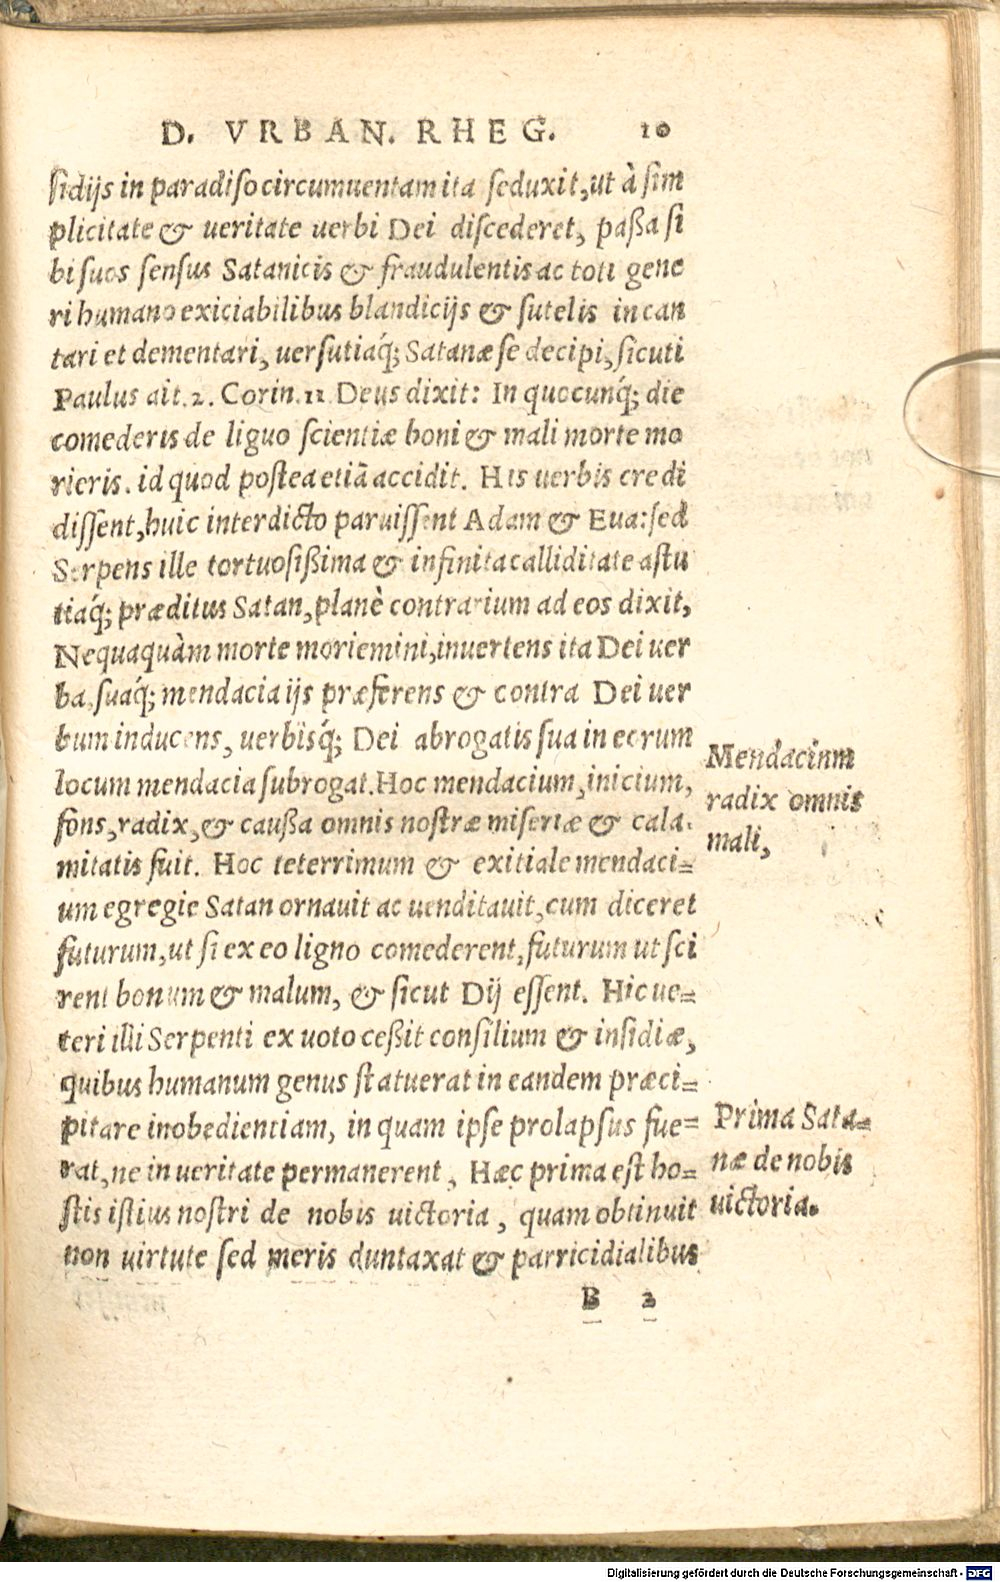 D. VRBAN. RHEG. 10
sidijs in paradiso circumuentam ita seduxit, ut à sim
plicitate & ueritate uerbi Dei discederet, paßa si
bi suos sensus Satanicis & fraudulentis ac toti gene
ri humano exiciabilibus blandicijs & sutelis incan
tari et dementari, uersutiaq́; Satanæ se decipi, sicuti
Paulus ait. 2. Corin. 11 Deus dixit: In quocunq́; die
comederis de liguo scientiæ boni & mali morte mo
rieris. id quod postea etiā accidit. His uerbis credi
dissent, huic interdicto paruissent Adam & Eua: sed
Serpens ille tortuosißima & infinita calliditate astu
tiaq́; præditus Satan, planè contrarium ad eos dixit,
Nequaquàm morte moriemini, inuertens ita Dei uer
ba, suaq́; mendacia ijs præferens & contra Dei uer
bum inducens, uerbisq́; Dei abrogatis sua in eorum
locum mendacia subrogat. Hoc mendacium, inicium,
fons, radix, & caußa omnis nostræ miseriæ & cala-
mitatis fuit. Hoc teterrimum & exitiale mendaci=
um egregie Satan ornauit ac uenditauit, cum diceret
futurum, ut si ex eo ligno comederent, futurum ut sci
rent bonum & malum, & sicut Dij essent. Hic ue=
teri illi Serpenti ex uoto ceßit consilium & insidiæ,
quibus humanum genus statuerat in eandem præci=
pitare inobedientiam, in quam ipse prolapsus fue=
rat, ne in ueritate permanerent, Hæc prima est ho=
stis istius nostri de nobis uictoria, quam obtinuit
non uirtute sed meris duntaxat & parricidialibus
B 2
Mendacium
radix omnis
mali,
Prima Sata=
næ de nobis
uictoria.
Digitalisierung gefördert durch die Deutsche Forschungsgemeinschaft - DFG